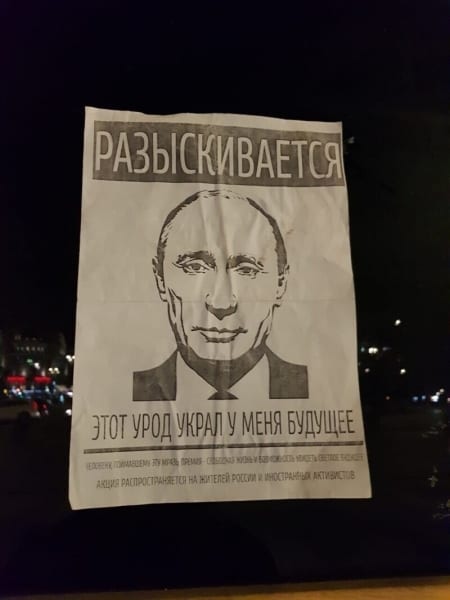 РАЗЫСКИВАЕТСЯ
ЭТОТ УРОД УКРАЛ У МЕНЯ БУДУЩЕЕ
ЧЕЛОВЕКУ, ПОЙМАВШЕМУ ЭТУ МРАЗЬ ПРЕМИЯ - СВОБОДНАЯ ЖИЗНЬ И ВОЗМОЖНОСТЬ УВИДЕТЬ СВЕТЛОЕ БУДУЩЕЕ
АКЦИЯ РАСПРОСТРАНЯЕТСЯ НА ЖИТЕЛЕЙ РОССИИ И ИНОСТРАННЫХ АКТИВИСТОВ